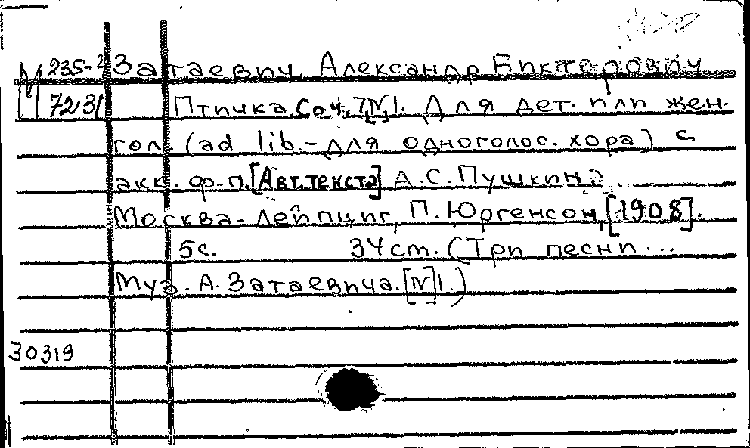 М 235-2 Затаевич, Александр Викторович
7231 Птичка. Соч. [IV]1. Для дет. или жен.
гол. (ad lib. - для одноголос. хора) с
акк. ф-п. [Авт. текста] А.С. Пушкин.
Москва-Лейпциг, П. Юргенсон, [1908].
5с. 34 см. (Три песни...
Муз. А. Затаевича. [IV]1.)
30319